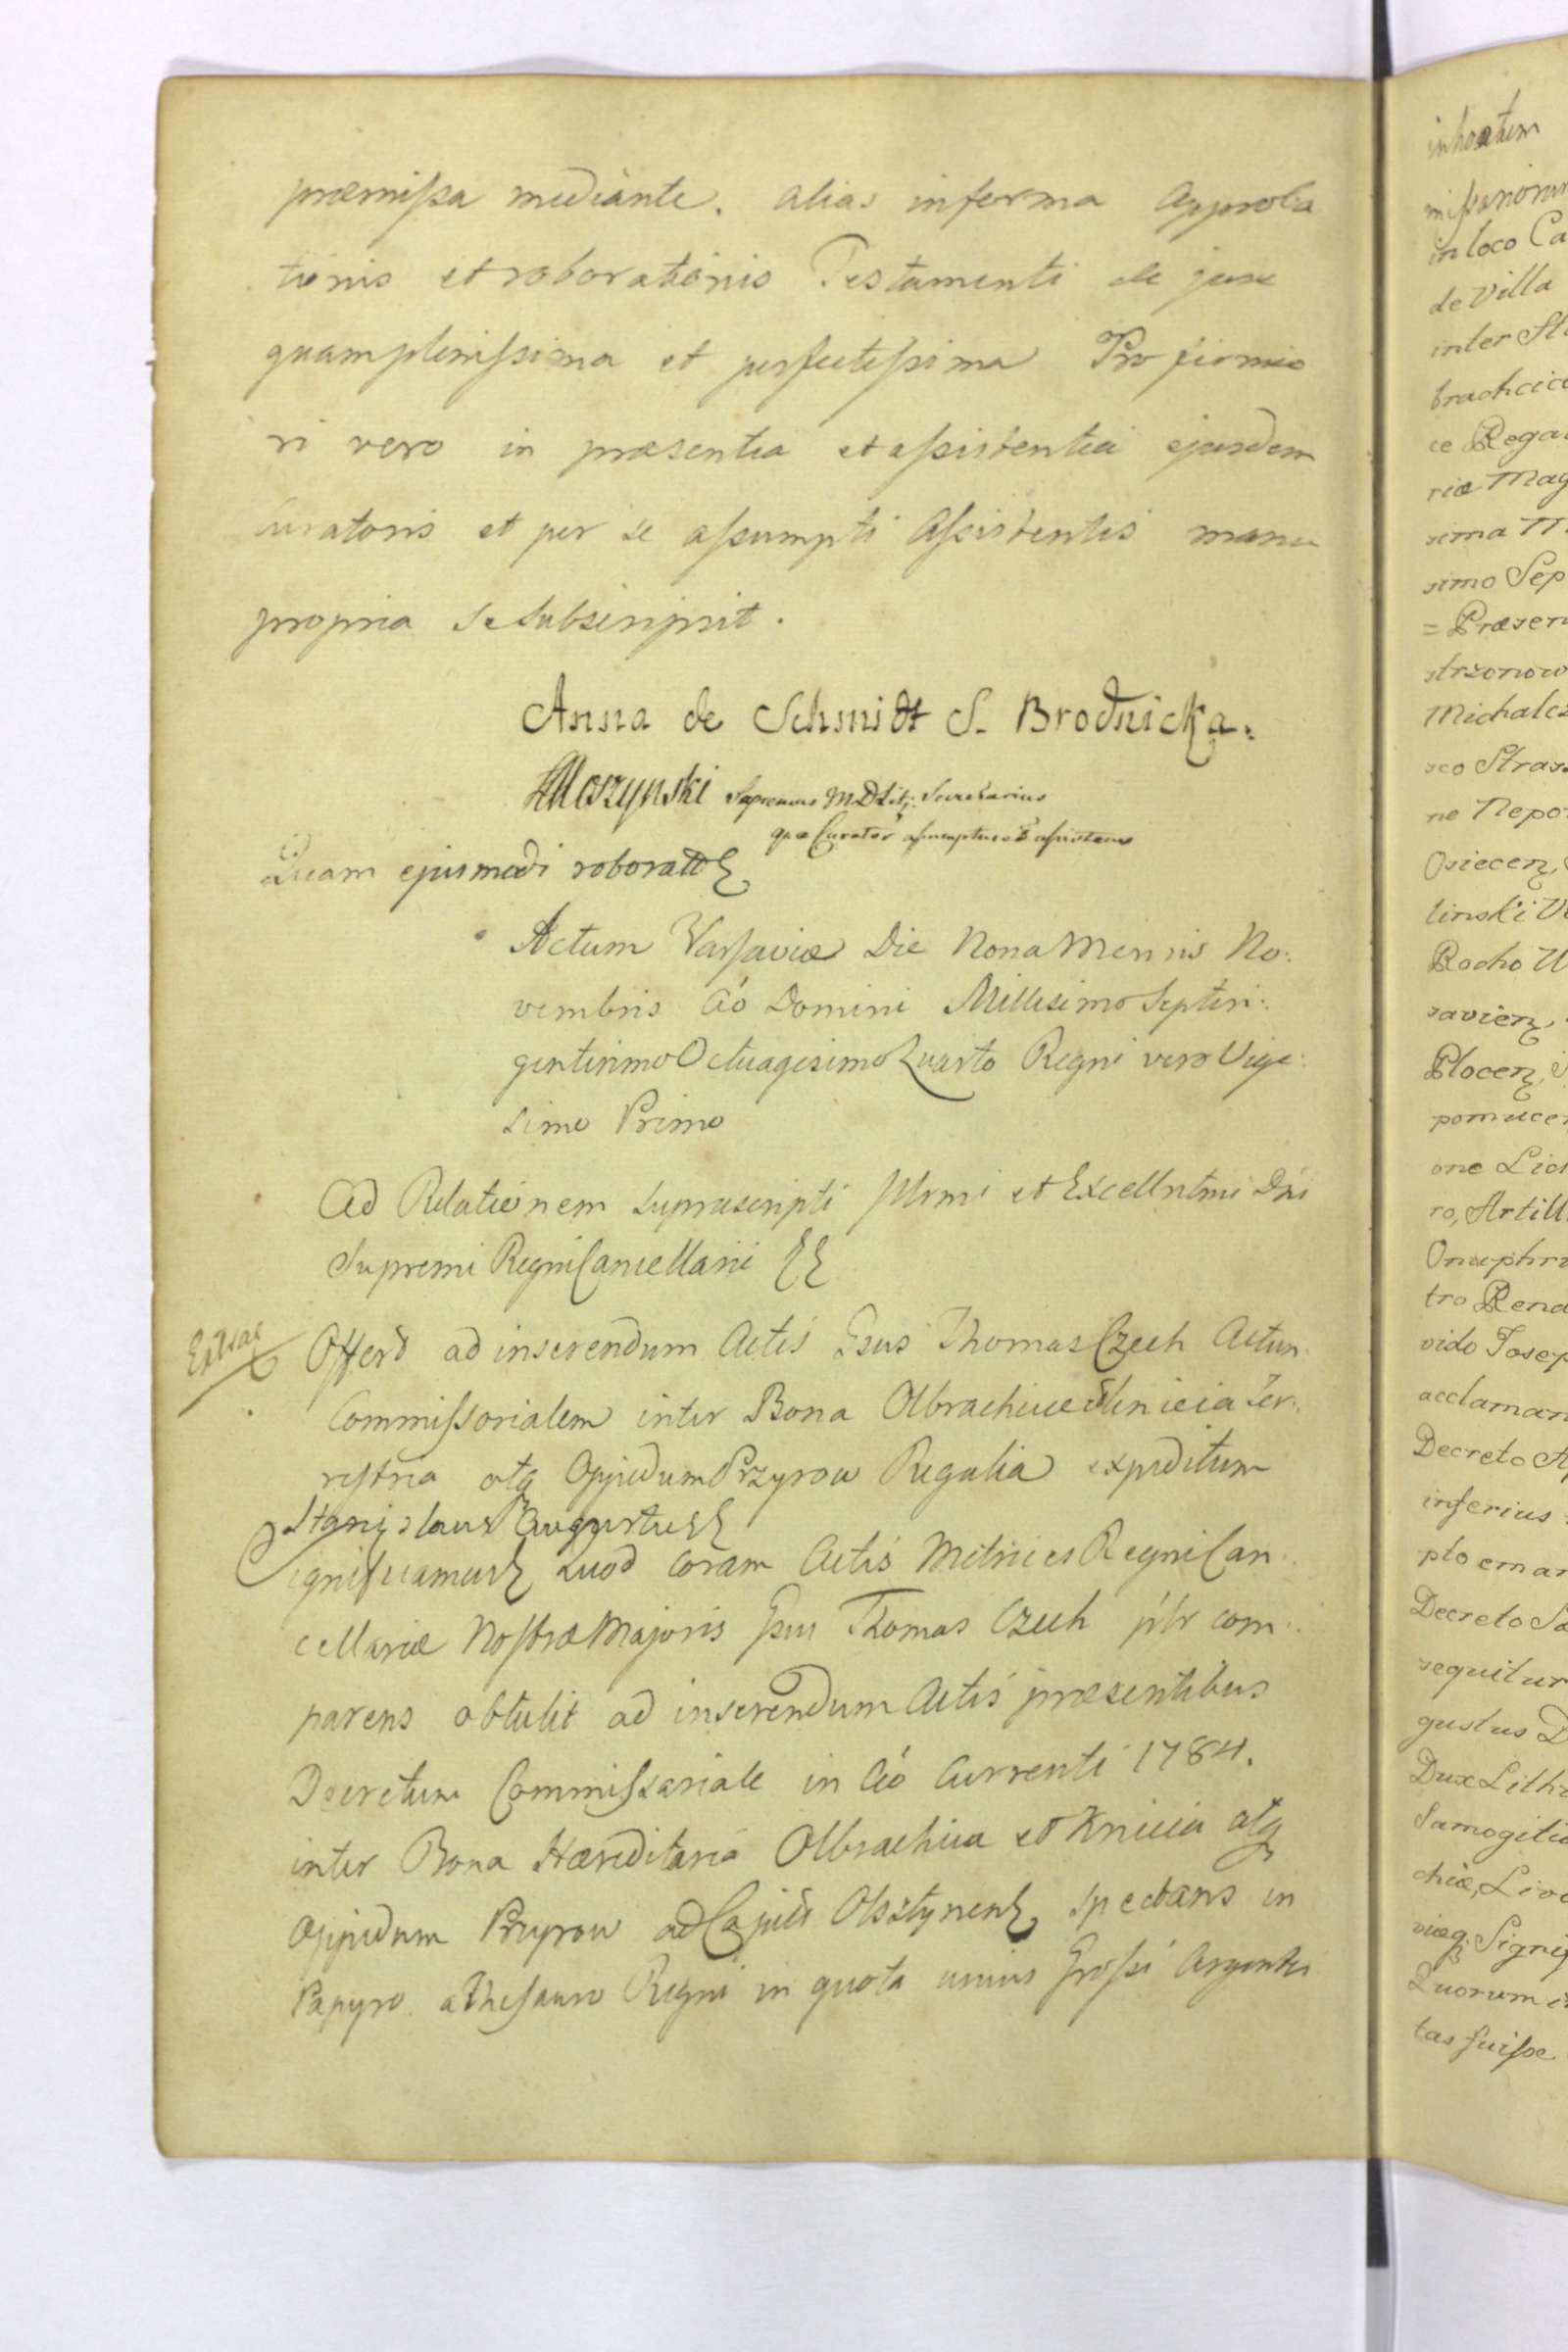 præmissa mediante. alias in forma Approba
tionis et roborationis Testamenti de jure
quamplenissima et perfectissima Pro firmio
ri vero in præsentia et assistentia ejusdem
curatoris et per se assumpti Assistentis manu
propria se subscripsit.
Anna de Schmidt S. Brodnicka.
Moszynski Supremus M D Lit: Secretarius
qua Curator assumptus & assistens
Quam ejusmodi roborat
Actum Varsaviæ Die Nona Mensis No:
vembris Aó Domini Millesimo Septin:
gentesimo Octuagesimo Quarto Regni vero Vige:
simo Primo
Ad Relationem suprascripti Illrmi et Excellntmi Dni
Supremi Regni Cancellarii
Extrac
Offert ad inserendum Actis Gsus Thomas Czech Actum
Commissorialem inter Bona Olbrachice & Knieia Ter:
restria atq Oppidum Przyrow Regalia expeditum
Stanislaus Augustus
Significamus Quod coram Actis Metrices Regni Can:
cellariæ Nostræ Majoris Gsus Thomas Czech p'lr com:
parens obtulit ad inserendum Actis præsentibus
Decretum Commissariale in Aó Currenti 1784.
inter Bona Hæreditaria Olbrachice et Knieia atq
oppidum Przyrow ad Capitt Olsztynen spectans in
Papyro a Thesauro Regni in quota unius Grossi Argentei
in hoc atem
missariorum
in loco Ca
de Villa
inter Sta
brachcice
ce Rega
riæ Mag
sima
simo Sep
= Præsen
strzonow
Michalcz
sco Stras
ne Nepo
Osiecen,
linski
Rocho
savien,
Plocen,
pomuce
one Lid
ro, Artill
Onuphri
tro Rena
vido Josep
acclaman
Decreto A
inferius
pto eman
Decreto Sa
sequitur
gustus D
Dux Lith
Samogitiæ
chiæ, Livo
viæq. Signif
Quorum
tas fuisse